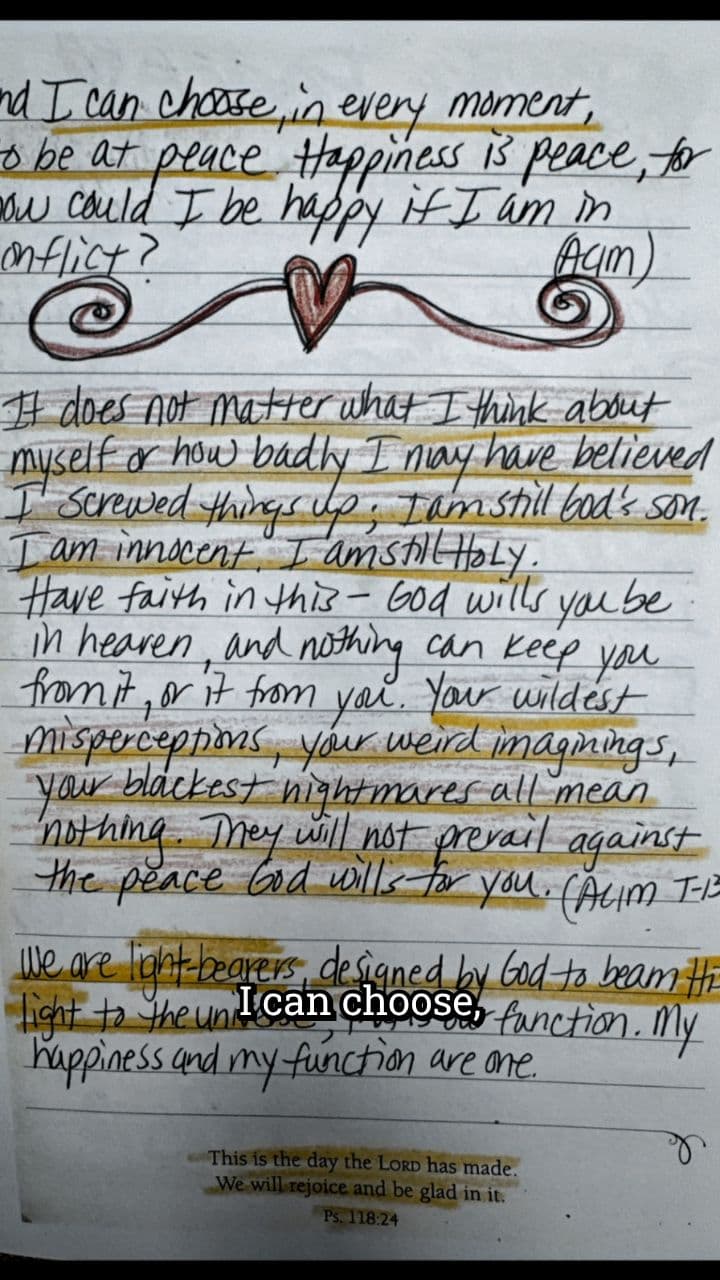 nd I can choose, in every moment,
o be at peace. Happiness is peace, for
ow could I be happy if I am in
onflict? (Aqm)
It does not matter what I think about
myself or how badly I may have believed
I screwed things up; I am still God's son.
I am innocent. I am still HoLy.
Have faith in this - God wills you be
in heaven, and nothing can keep you
from it, or it from you. Your wildest
misperceptions, your weird imaginings,
your blackest nightmares all mean
nothing. They will not prevail against
the peace God wills for you. (ACIM T-13
We are light-bearers, designed by God to beam Hi
light to the function. My
I can choose,
happiness and my function are one.
This is the day the LORD has made.
We will rejoice and be glad in it.
Ps. 118:24